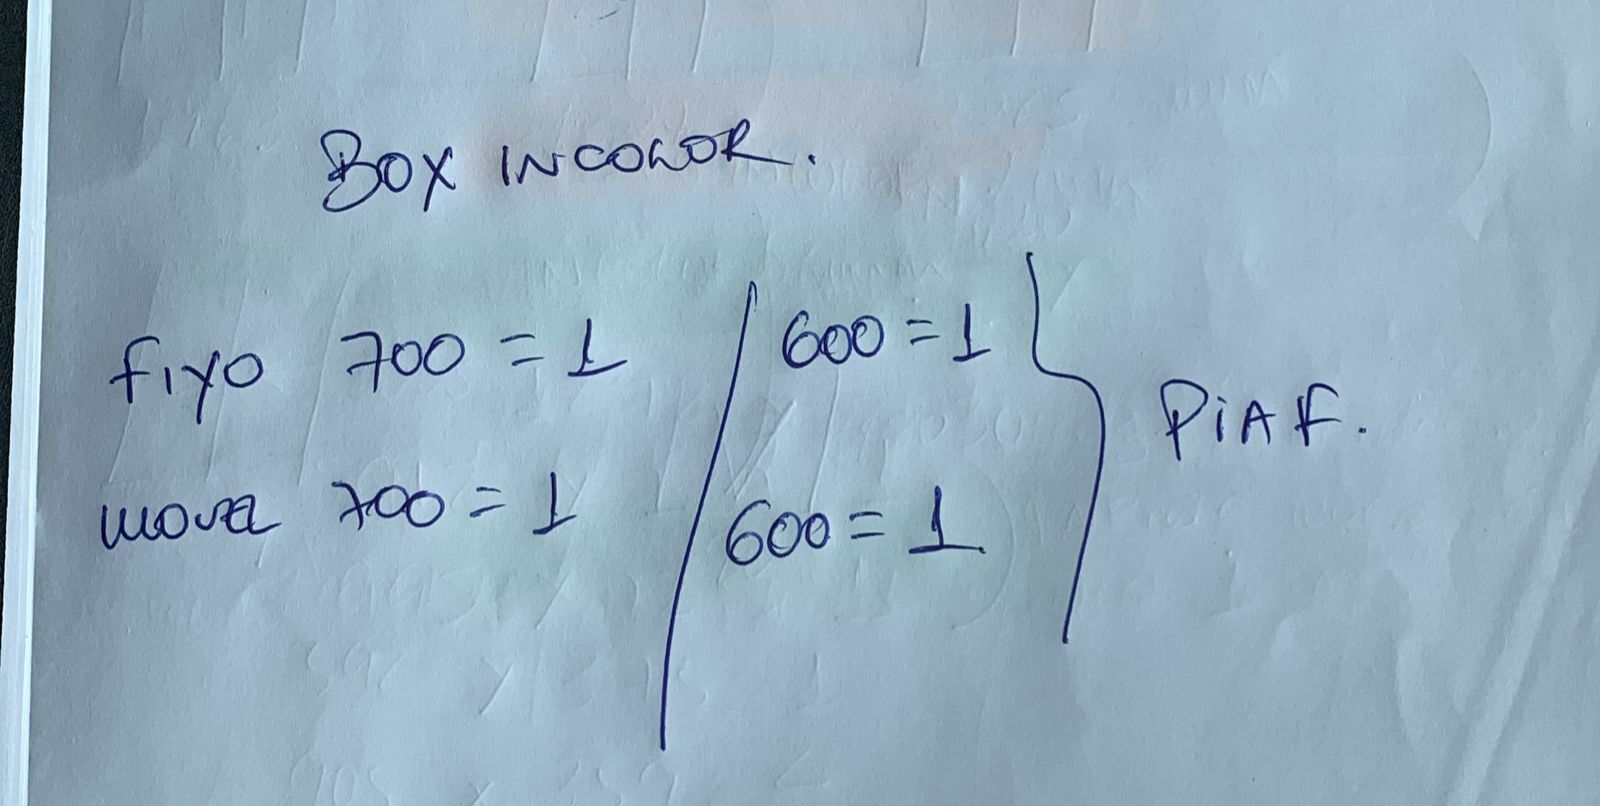 BOX INCOLOR.
fiyo 700 = 1 / 600 = 1
movel 700 = 1 600 = 1
PiAF.